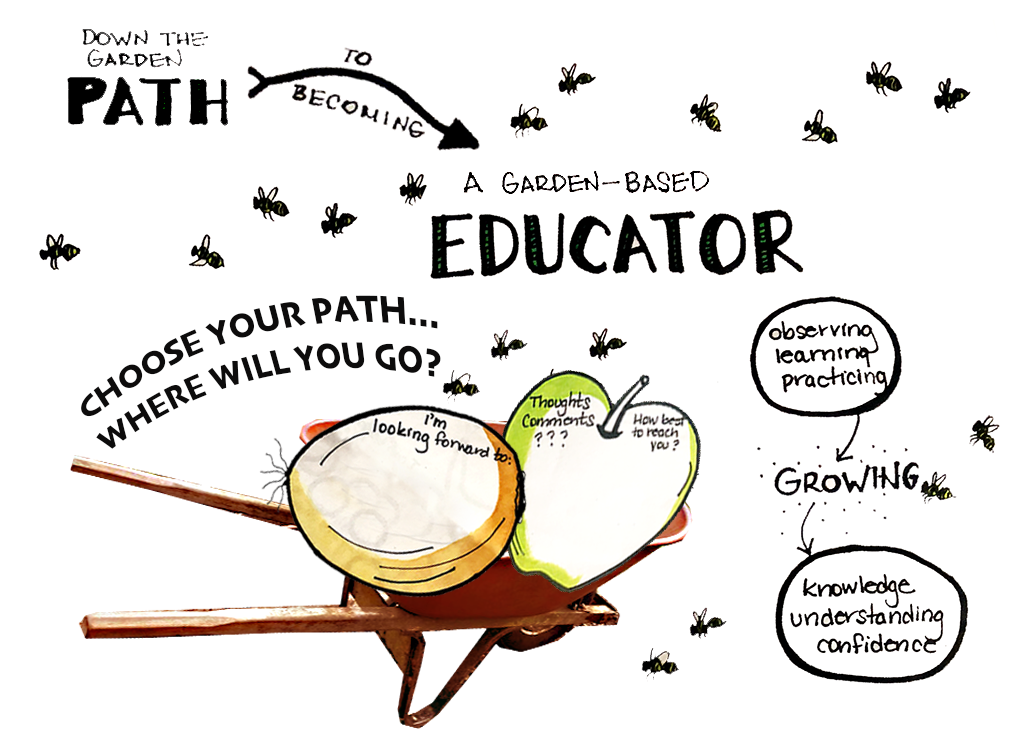 DOWN THE
GARDEN
PATH
TO
BECOMING
A GARDEN-BASED
EDUCATOR
CHOOSE YOUR PATH...
WHERE WILL YOU GO?
I'm
looking forward to:
Thoughts
Comments
? ? ?
How best
to reach
you?
observing
learning
practicing
GROWING
knowledge
understanding
confidence